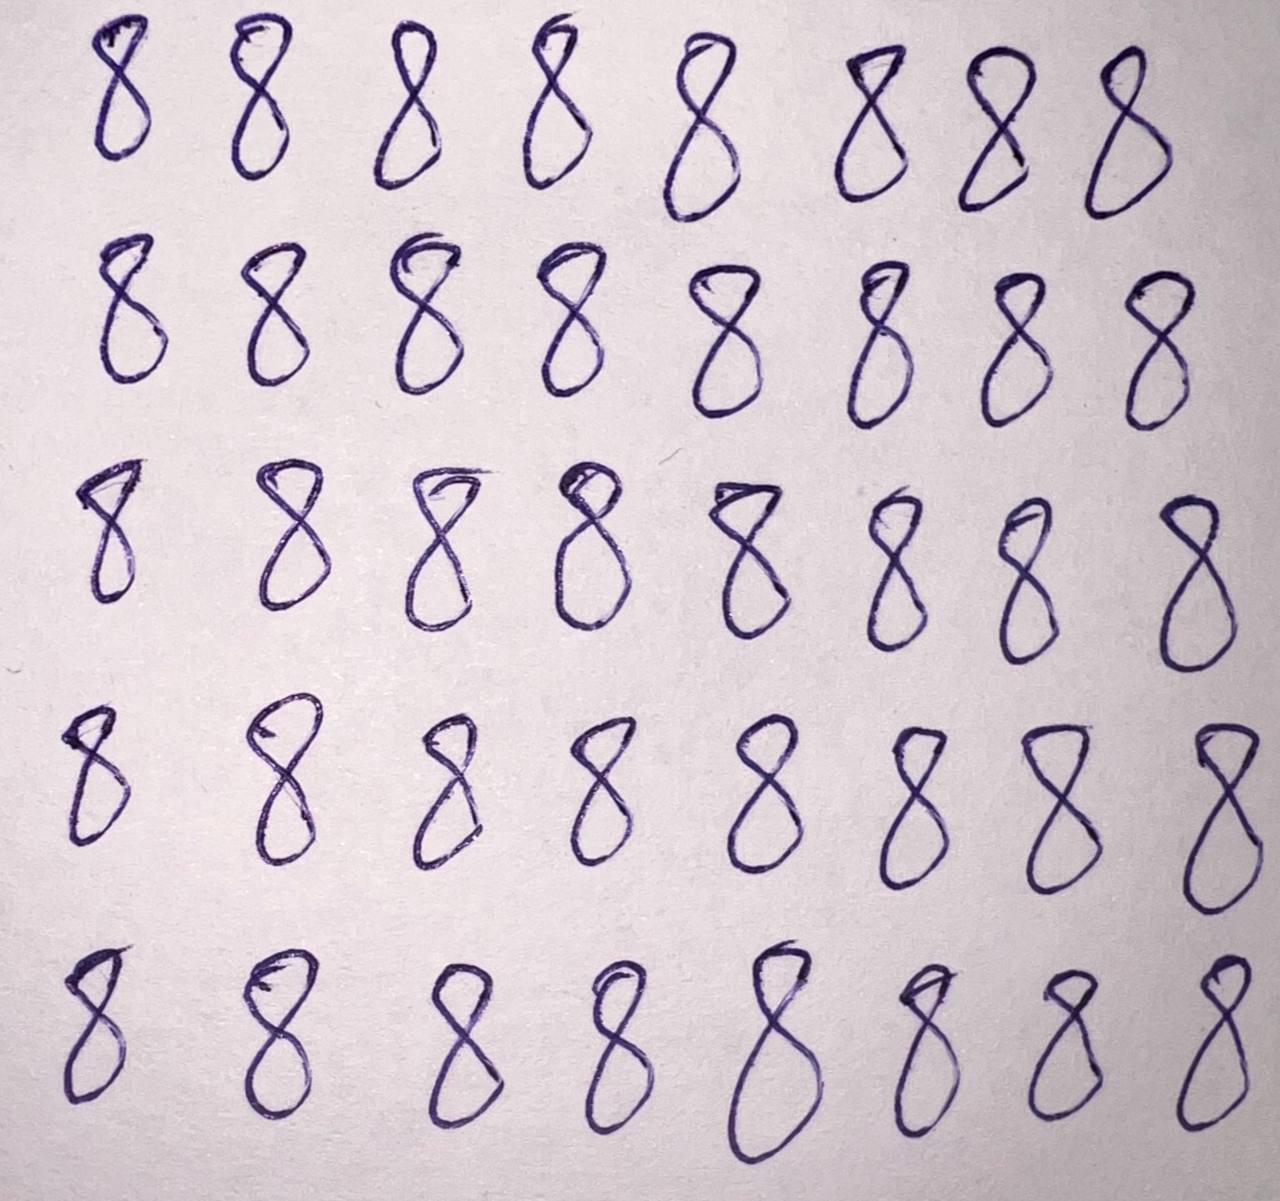 8 8 8 8 8 8 8 8
8 8 8 8 8 8 8 8
8 8 8 8 8 8 8 8
8 8 8 8 8 8 8 8
8 8 8 8 8 8 8 8